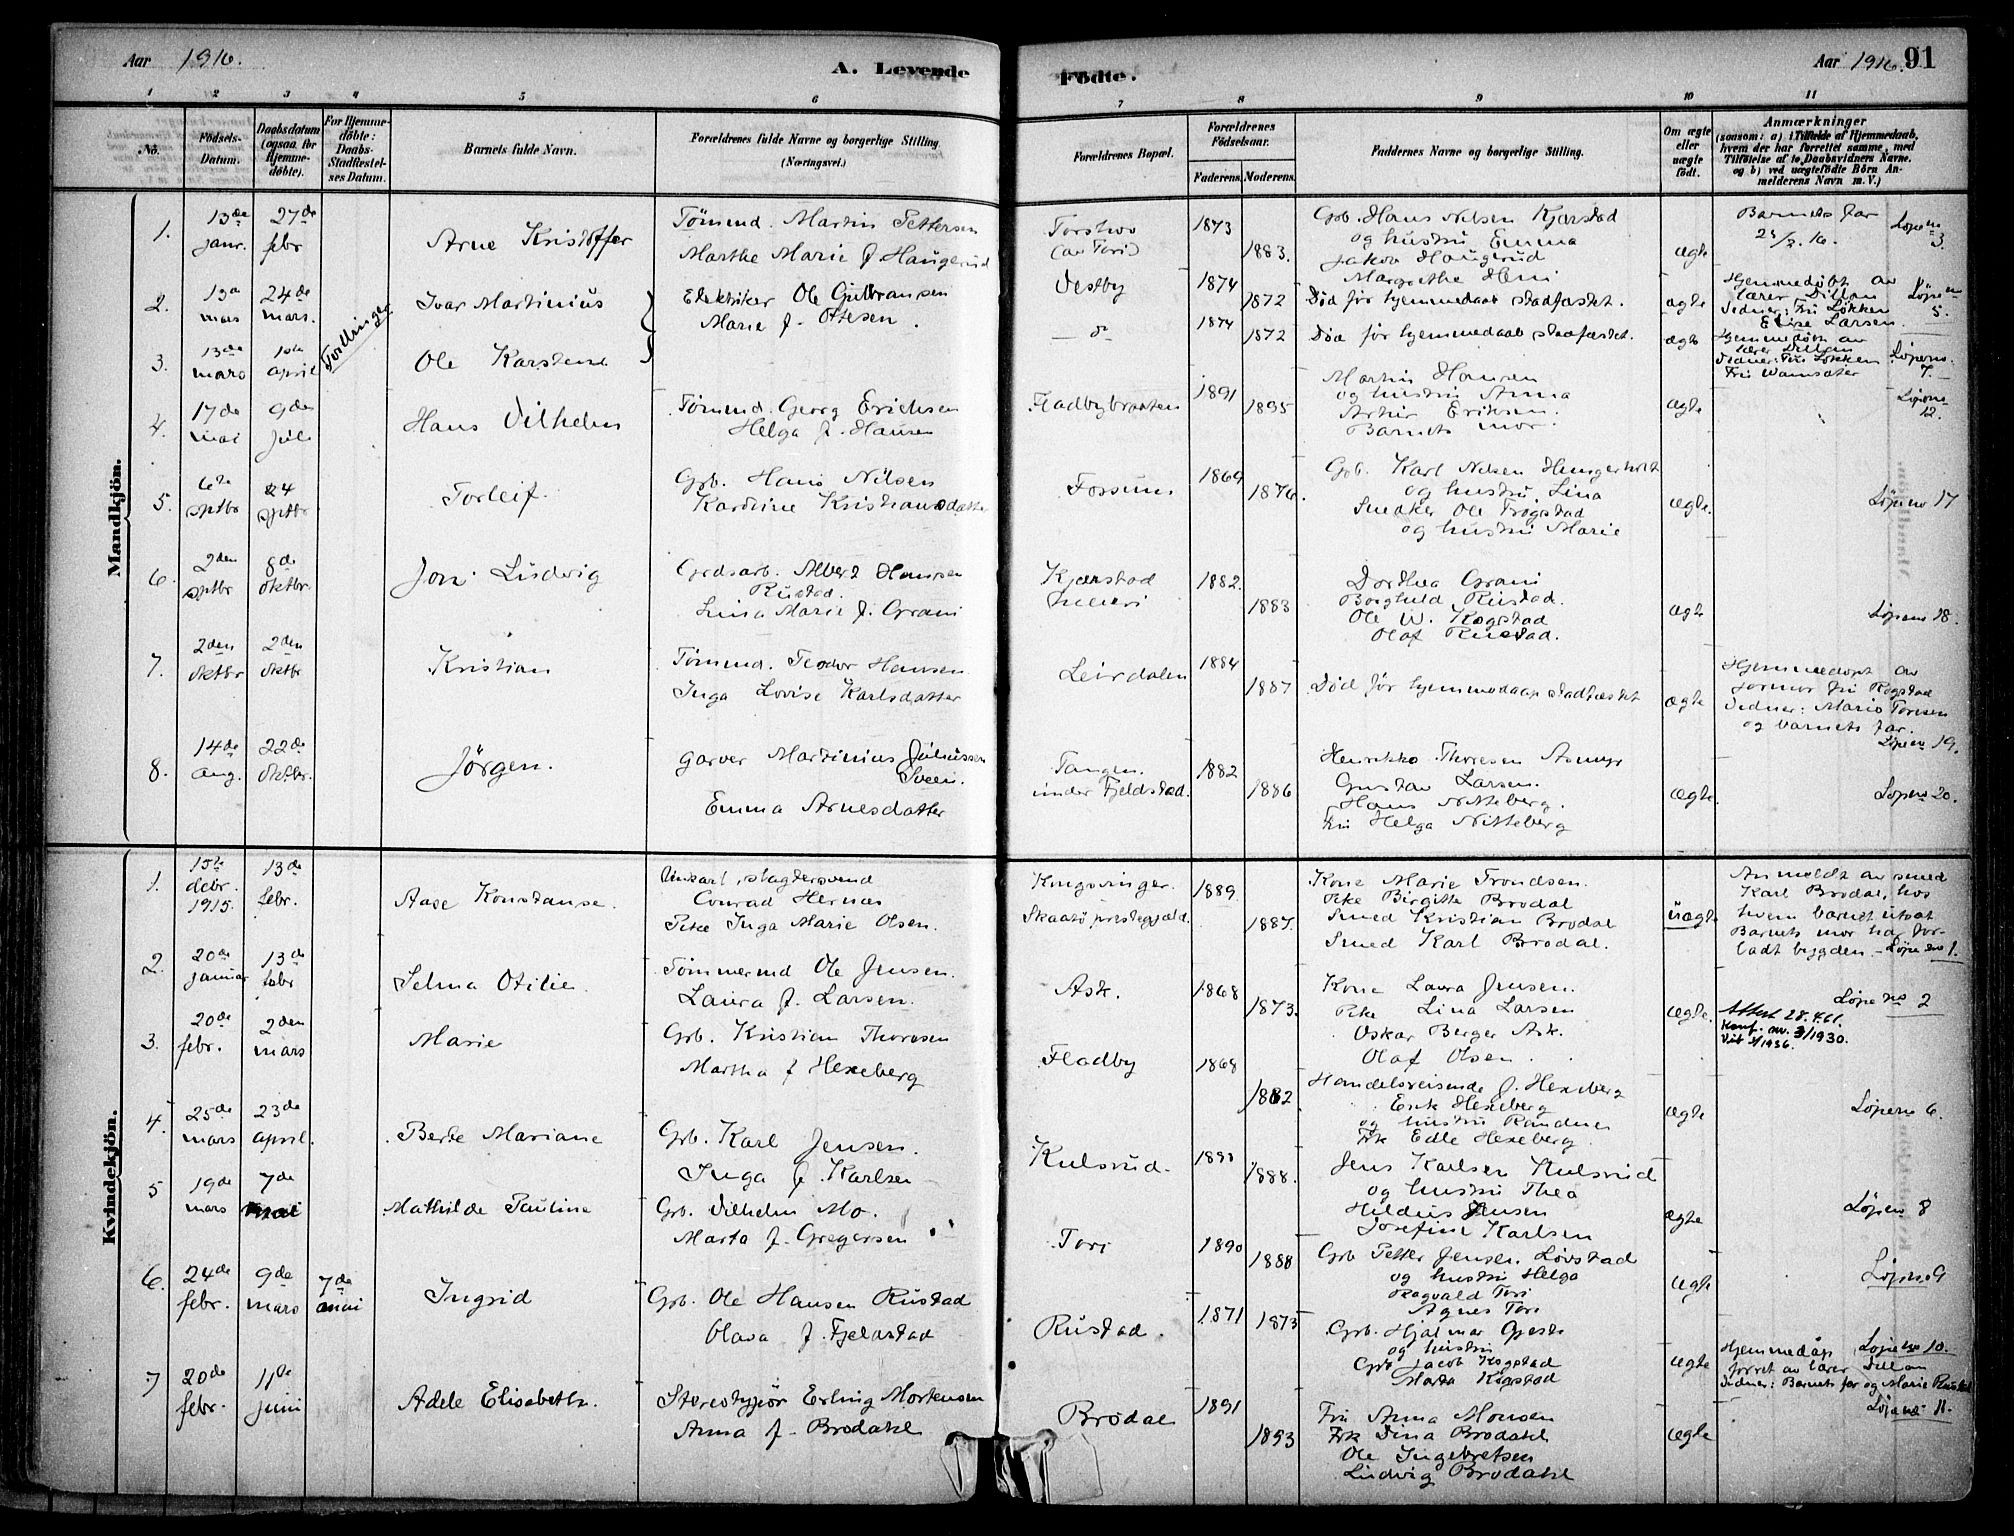 Aar 1916.
A. Levende Födte.
Aar 1916. 91
1 2 3 4 5 6 7 8 9 10 11
No.
Födsels-Datum.
Daabsdatum (ogsaa for Hjemmedöbte).
For Hjemmedöbte: Daabs-Stadfestelses Datum.
Barnets fulde Navn.
Forældrenes fulde Navne og borgerlige Stilling. (Næringsvei.)
Forældrenes Bopæl.
Forældrenes Födselsaar.
Faderens. Moderens.
Faddernes Navne og borgerlige Stilling.
Om ægte eller uægte födt.
Anmærkninger (saasom: a) i Tilfælde af Hjemmedaab, hvem der har forrettet samme, med Tilföielse af to Daabsvidners Navne. og b) ved uægtefödte Börn Anmelderens Navn m. V.)
Mandkjön.
1. 13de janr. 27de febr Arne Kristoffer
Tømmd. Martin Pettersen
Marthe Marie f. Haugerud
Torshov (av Tori) 1873 1883.
Grb. Hans Nilsen Kjærstad
og hustru Emma
Jakob Haugerud
Margrethe Heni
ægte
Barnets far
Løpeno 3.
2. 13de mars 24de mars. Ivar Martinius
Tvillinger
Elektriker Ole Gulbransen
Marie f. Ottesen.
Vestby 1874 1872
Død før hjemmedaab stadfæstet.
ægte
Hjemmedøbt av
lærer Dillan
Vidner: Fru Løkken
Elise Larsen.
Løpeno 5.
3. 13de mars 1ste april Ole Karstens
do 1874 1872
Død før hjemmedaab stadfæstet.
ægte
Hjemmedøbt av
lærer Dillan
Vidner: Fru Løkken
Løpeno. 7.
4. 17de mai 9den juli Hans Vilhelm
Tømmd. Georg Erichsen
Helga f. Hansen
Fladbybraaten 1891 1895
Martin Hansen
og hustru Anna
Artur Eriksen.
Barnets mor.
ægte
Løpeno 12.
5. 6te sptbr 24 sptbr Torleif.
Grb. Hans Nilsen
Karoline Kristiansdatter
Fossum 1869 1876.
Grb. Karl Nilsen Hengerholt
og hustru Lina
Snedker Ole Trøgstad
og hustru Marie
ægte.
Løpeno 17
6. 2den sptbr 8de oktbr. Jon Ludvig
Grdsarb. Albert Hansen
Rustad.
Lina Marie f. Grani
Kjærstad 1882. 1883
Dorthea Grani
Borghild Rustad.
Ole W. Kogstad
Olaf Rustad.
ægte
Løpeno 18.
7. 2den oktbr 2den oktbr Kristian
Tømmd. Teodor Hansen
Inga Lovise Karlsdatter
Leirdalen 1884 1887
Død før hjemmedaap stadfæstet
ægte
Hjemmedøpt av
jormor fru Rogstad
Vidner: Marie Toresen
og barnets far.
Løpeno 19.
8. 14de aug. 22de oktbr. Jørgen.
Garver Martinius Juliussen
Sveen.
Emma Arnesdatter
Tangen
under Fjeldstad. 1882 1886
Henrikke Thoresen Asmyr
Gustav Larsen.
Hans Nitteberg.
Fru Helga Nitteberg
ægte.
Løpeno 20.
Kvindekjön.
1. 15de debr. 1915. 13de febr. Aase Konstanse.
Unkarl, slagtersvend
Conrad Hernæs
Pike Inga Marie Olsen.
Kongsvinger. 1889.
Skaatø prestegjeld. 1887.
Kone Marie Trondsen.
Pike Birgitte Brodal
Smed Kristian Brodal
Smed Karl Brodal.
uægte
Anmeldt av smed
Karl Brodal, hos
hvem barnet utsat
Barnets mor har for-
ladt bygden. - Løpeno 1.
2. 20de januar 13de febr Selma Otilie.
Tømmermd Ole Jensen.
Laura f. Larsen.
Ask. 1868 1873.
Kone Laura Jensen.
Pike Lina Larsen
Oskar Berger Ask.
Olaf Olsen.
ægte.
Løpeno 2
Attest 28.4.61.
Konf. av. 3/1930.
3. 20de febr. 2den mars Marie
Grb. Kristian Thoresen
Martha f Hexeberg
Fladby 1868 1882
Handelsreisende J. Hexeberg
Erik Hexeberg
og hustru Randine
Frk Edle Hexeberg.
ægte
Løpeno 6.
4. 25de mars 23de april. Berte Mariane
Grb. Karl Jensen.
Inga f. Karlsen
Kulsrud. 1888.
Jens Karlsen Kulsrud
og hustru Thea
Hildus Jensen
Josefine Karlsen
ægte
Løpeno 8
5 19de mars 7de mai Mathilde Pauline
Grb. Vilhelm Mo.
Marta f. Gregersen
Tori 1890 1888
Grb Petter Jensen Løvstad
og hustru Helga
Ragvald Tori
Agnes Tori
ægte
Løpeno 9
6. 24de febr. 9de mars 7de mai Ingrid
Grb. Ole Hansen Rustad
Olava f. Fjeldstad
Rustad. 1871 1873
Grb. Hjalmar Gjeste
og hustru
Grb. Jacob Kogstad
Marta Kogstad
ægte
Hjemmedåp Løpeno 10.
forret av lærer Dillan
Vidner: Barnets far og Marie Rustad
7 20de febr. 11te juni Adele Elisabeth.
Stereotypør Erling Mortensen
Anna f. Brodahl
Brodal 1891 1893
Fru Anna Monsen
Frk Dina Brodahl
Ole Ingebretsen
Ludvig Brodahl
ægte
Løpeno 11.